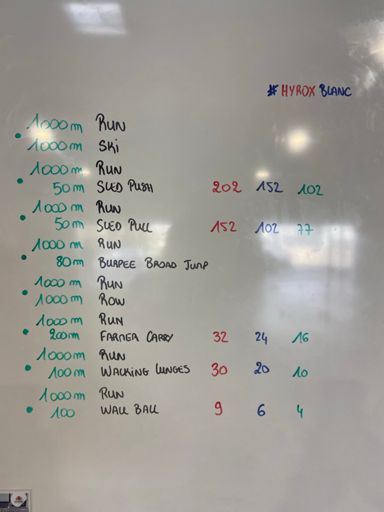 # HYROX BLANC
1000m Run
• 1000m Ski
1000m Run
• 50m Sled Push 202 152 102
1000m Run
• 50m Sled Pull 152 102 77
1000m Run
• 80m Burpee Broad Jump
1000m Run
• 1000m Row
1000m Run
• 200m Farmer Carry 32 24 16
1000m Run
• 100m Walking Lunges 30 20 10
1000m Run
• 100 Wall Ball 9 6 4